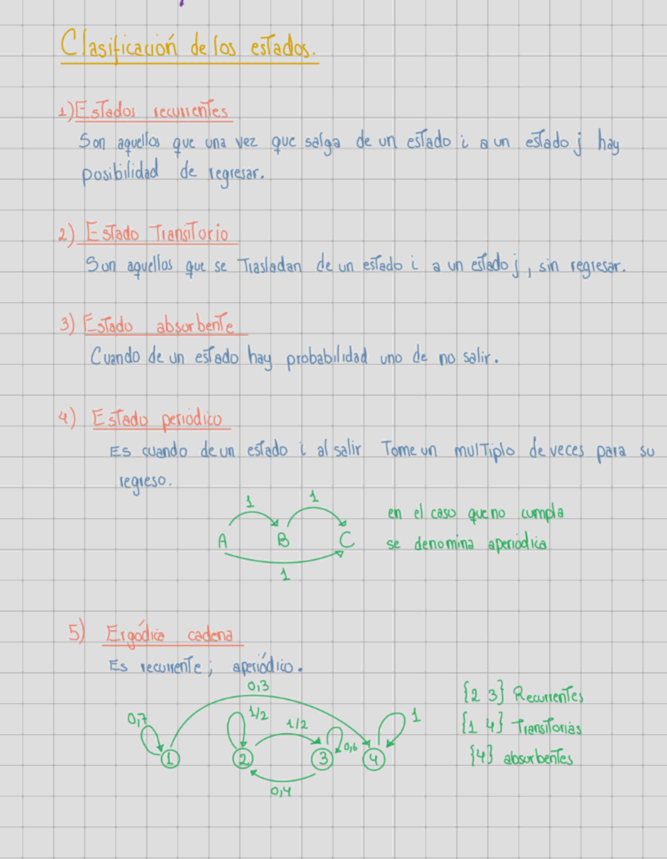 Clasificación de los estados.
1) Estados recurrentes
Son aquellos que una vez que salga de un estado i a un estado j hay
posibilidad de regresar.
2) Estado Transitorio
Son aquellos que se Trasladan de un estado i a un estado j, sin regresar.
3) Estado absorbente
Cuando de un estado hay probabilidad uno de no salir.
4) Estado periódico
Es cuando de un estado i al salir Tome un multiplo de veces para su
regreso.
1 1
A B C
1
en el caso que no cumpla
se denomina aperiódica
5) Ergódica cadena
Es recurrente; aperiódico.
0,3
0,7 1/2 1/2 0,6 1
1 2 3 4
0,4
{2 3} Recurrentes
{1 4} Transitorias
{4} absorbentes